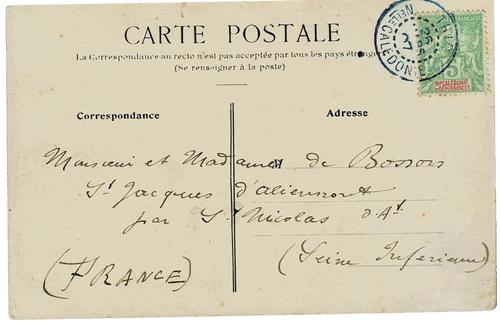 CARTE POSTALE
La Correspondance au recto n'est pas acceptée par tous les pays étrangers
(Se renseigner à la poste)
Correspondance
Adresse
Monsieur et Madame de Bossois
St Jacques d'aliermont
par St Nicolas d'At
(Seine Inferieure)
(FRANCE)
THIO
Nlle CALÉDONIE
5
Nlle CALÉDONIE
ET DÉPENDANCES